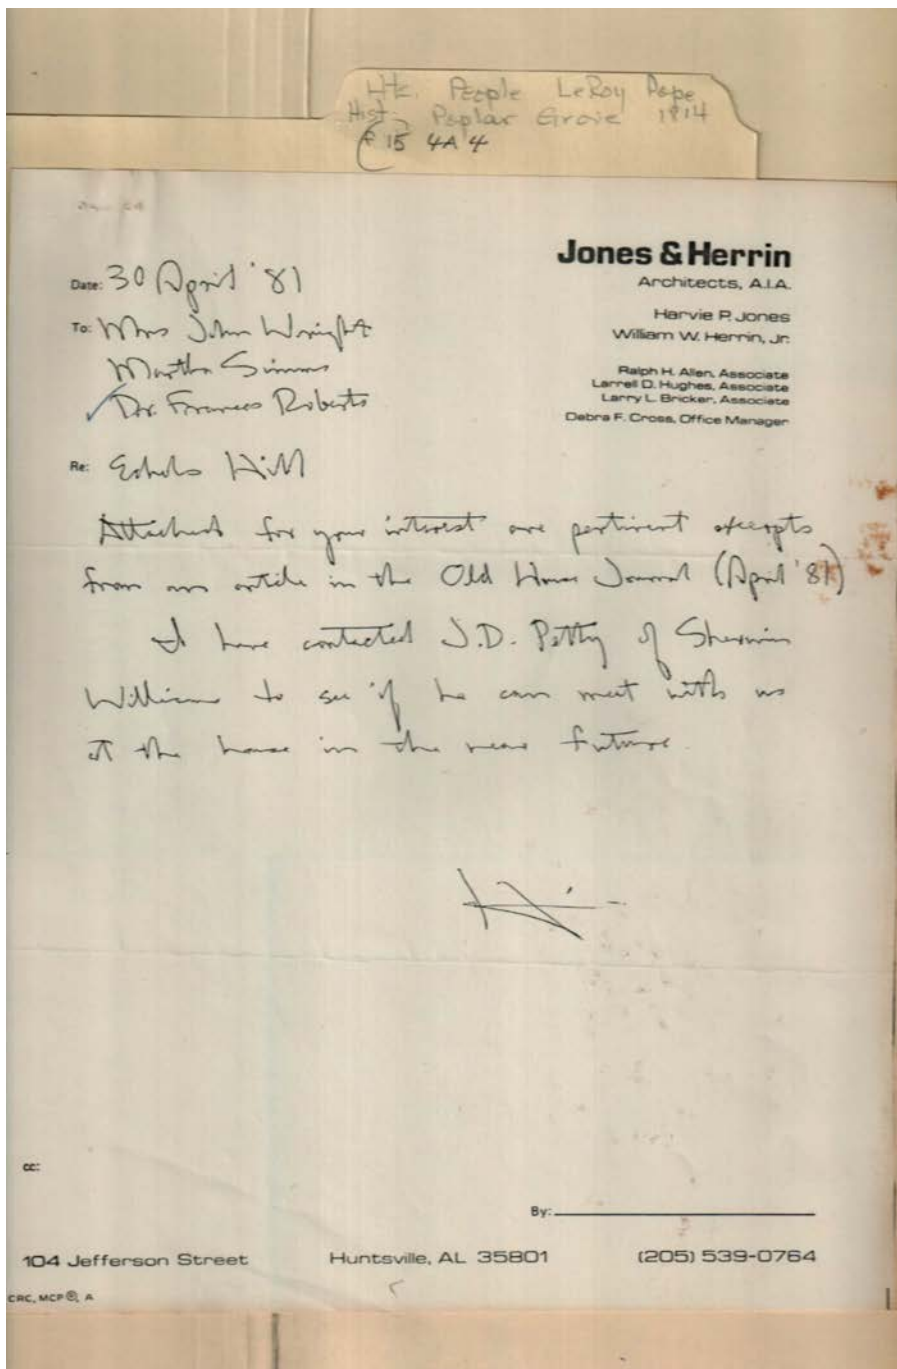 Hist. People LeRoy Pope
Hist. Poplar Grove 1814
15 4A 4
Jones & Herrin
Architects, A.I.A.
Harvie P. Jones
William W. Herrin, Jr.
Ralph H. Allen, Associate
Larrell D. Hughes, Associate
Larry L. Bricker, Associate
Debra F. Cross, Office Manager
Date: 30 April '81
To: Mrs John Wright
Martha Simms
Dr. Frances Roberts
Re: Echols Hill
Attached for your interest are pertinent excerpts
from an article in the Old House Journal (April '81)
I have contacted J.D. Petty of Sherwin
Williams to see if he can meet with us
at the house in the near future.
cc:
By:
104 Jefferson Street Huntsville, AL 35801 (205) 539-0764
CRC, MCP®, A